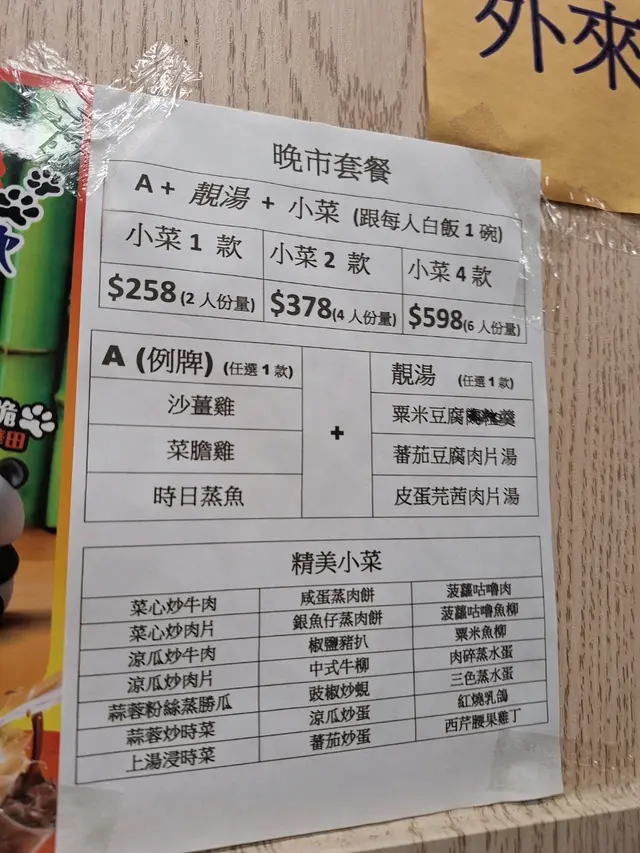 外來
晚市套餐
A + 靚湯 + 小菜 (跟每人白飯 1 碗)
小菜 1 款 小菜 2 款 小菜 4 款
$258 (2 人份量) $378 (4 人份量) $598 (6 人份量)
A (例牌) (任選 1 款)
沙薑雞
菜膽雞
時日蒸魚
+
靚湯 (任選 1 款)
粟米豆腐羹
蕃茄豆腐肉片湯
皮蛋芫茜肉片湯
精美小菜
菜心炒牛肉 咸蛋蒸肉餅 菠蘿咕嚕肉
菜心炒肉片 銀魚仔蒸肉餅 菠蘿咕嚕魚柳
涼瓜炒牛肉 椒鹽豬扒 粟米魚柳
涼瓜炒肉片 中式牛柳 肉碎蒸水蛋
蒜蓉粉絲蒸勝瓜 豉椒炒蜆 三色蒸水蛋
蒜蓉炒時菜 涼瓜炒蛋 紅燒乳鴿
上湯浸時菜 蕃茄炒蛋 西芹腰果雞丁